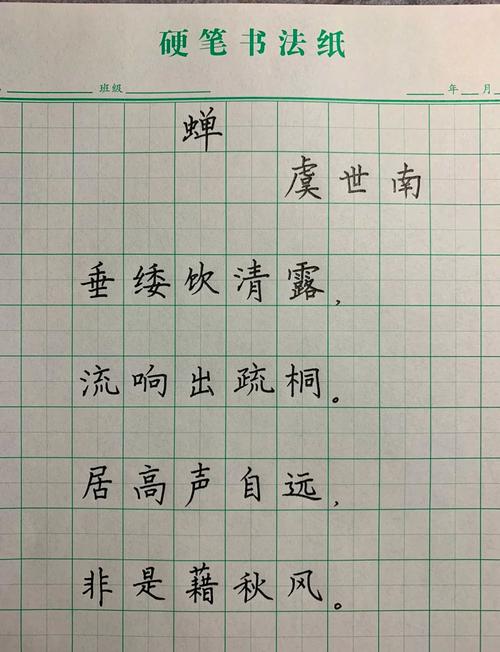 硬笔书法纸
班级 年 月
蝉
虞世南
垂緌饮清露，
流响出疏桐。
居高声自远，
非是藉秋风。